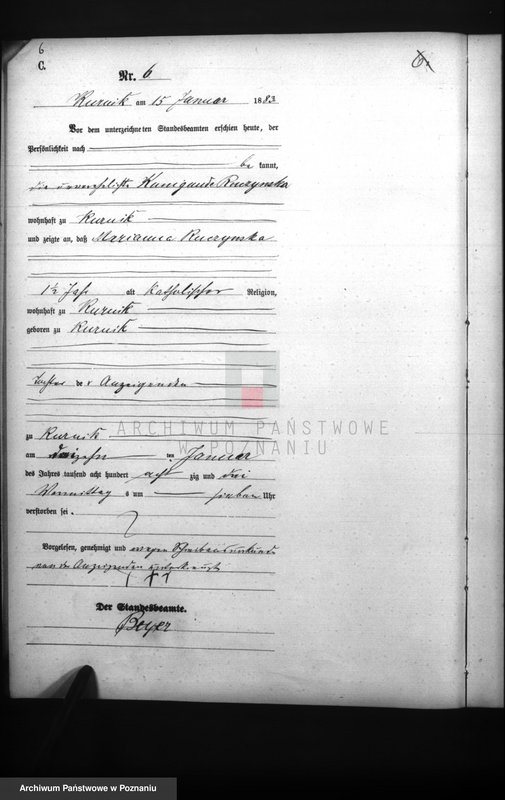 6
C.
6.
Nr. 6
Kurnik am 15 Januar 1883
Vor dem unterzeichneten Standesbeamten erschien heute, der
Persönlichkeit nach
be kannt,
die unverehelichte Kunigunde Ruczynska
wohnhaft zu Kurnik
und zeigte an, daß Marianna Ruczynska
1½ Jahr alt katholischer Religion,
wohnhaft zu Kurnik
geboren zu Kurnik
Tochter der Anzeigenden
ARCHIWUM PAŃSTWOWE
W POZNANIU
zu Kurnik
am dreizehn ten Januar
des Jahres tausend acht hundert acht zig und drei
Vormittag s um sieben Uhr
verstorben sei.
Vorgelesen, genehmigt und wegen Schreibensunkunde
von der Anzeigenden unterkreuzt
+++
Der Standesbeamte.
Beyer
Archiwum Państwowe w Poznaniu